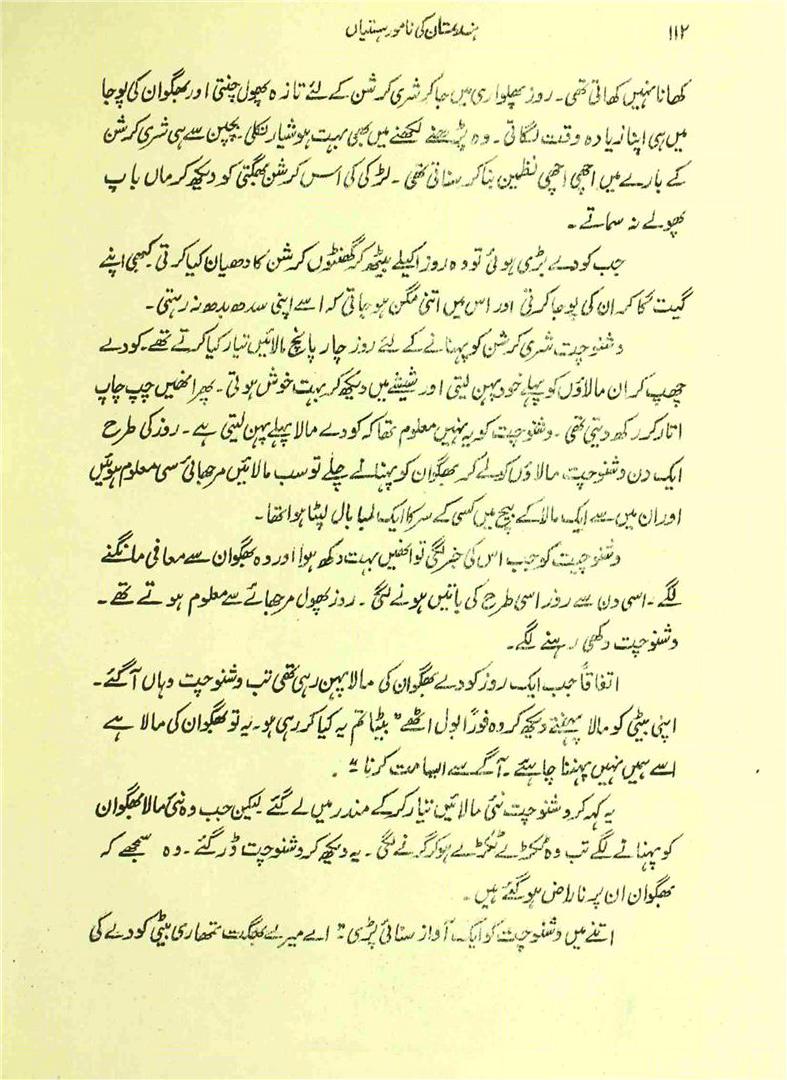 ۱۱۲
ہندوستان کی نامور ہستیاں
کھانا نہیں کھاتی تھی۔ روز پھلواری میں جا کر شری کرشن کے لئے تازہ پھول چنتی اور بھگوان کی پوجا
میں ہی اپنا زیادہ وقت لگاتی۔ وہ پڑھنے لکھنے میں بھی بہت ہوشیار نکلی بچپن سے ہی شری کرشن
کے بارے میں اچھی اچھی نظمیں بنا کر سناتی تھی۔ لڑکی کی اس کرشن بھگتی کو دیکھ کر ماں باپ
پھولے نہ سماتے۔
جب کودے بڑی ہوئی تو وہ روز اکیلے بیٹھ کر گھنٹوں کرشن کا دھیان کیا کرتی کبھی اپنے
گیت گا کر ان کی پوجا کرتی اور اس میں اتنی مگن ہو جاتی کہ اسے اپنی سدھ بدھ نہ رہتی۔
وشنوچت شری کرشن کو پہنانے کے لئے روز چار پانچ مالائیں تیار کیا کرتے تھے۔ کودے
چھپ کر ان مالاؤں کو پہلے خود پہن لیتی اور شیشے میں دیکھ کر بہت خوش ہوتی۔ پھر انھیں چپ چاپ
اتار کر رکھ دیتی تھی۔ وشنوچت کو یہ نہیں معلوم تھا کہ کودے مالا پہلے پہن لیتی ہے۔ روز کی طرح
ایک دن وشنوچت مالاؤں کو لے کر بھگوان کو پہنانے چلے تو سب مالائیں مرجھائی سی معلوم ہوئیں
اور ان میں سے ایک مالا کے بیچ میں کسی کے سر کا ایک لمبا بال لپٹا ہوا تھا۔
وشنوچت کو جب اس کی خبر لگی تو انھیں بہت دکھ ہوا اور وہ بھگوان سے معافی مانگنے
لگے۔ اسی دن سے روز اسی طرح کی باتیں ہونے لگی۔ روز پھول مرجھائے سے معلوم ہوتے تھے۔
وشنوچت دکھی رہنے لگے۔
اتفاقاً جب ایک روز کودے بھگوان کی مالا پہن رہی تھی تب وشنوچت وہاں آ گئے۔
اپنی بیٹی کو مالا پہنتے دیکھ کر وہ فوراً بول اٹھے "بیٹا تم یہ کیا کر رہی ہو۔ یہ تو بھگوان کی مالا ہے
اسے ہمیں نہیں پہننا چاہیئے۔ آگے سے ایسا مت کرنا"۔
یہ کہہ کر وشنوچت نئی مالائیں تیار کر کے مندر میں لے گئے لیکن جب وہ نئی مالا بھگوان
کو پہنانے لگے تب وہ ٹکڑے ٹکڑے ہو کر گرنے لگی۔ یہ دیکھ کر وشنوچت ڈر گئے۔ وہ سمجھے کہ
بھگوان ان پر ناراض ہو گئے ہیں۔
اتنے میں وشنوچت کو ایک آواز سنائی پڑی "اے میرے بھگت تمھاری بیٹی کودے کی